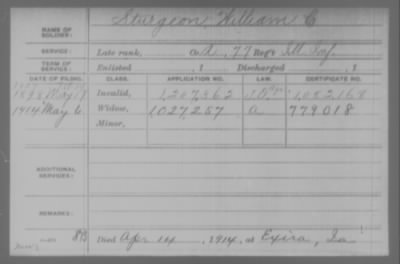 NAME OF SOLDIER: Sturgeon, William C
SERVICE: Late rank, Co. A, 77 Reg't Ill. Inf.
TERM OF SERVICE: Enlisted , 1 Discharged , 1
DATE OF FILING. CLASS. APPLICATION NO. LAW. CERTIFICATE NO.
1898 May 19 Invalid, 1,207,362 1,082,168
1914 May 6 Widow, 1,027,257 a 779,018
Minor,
ADDITIONAL SERVICES:
REMARKS:
Died Apr 14, 1914, at Exira, Ia